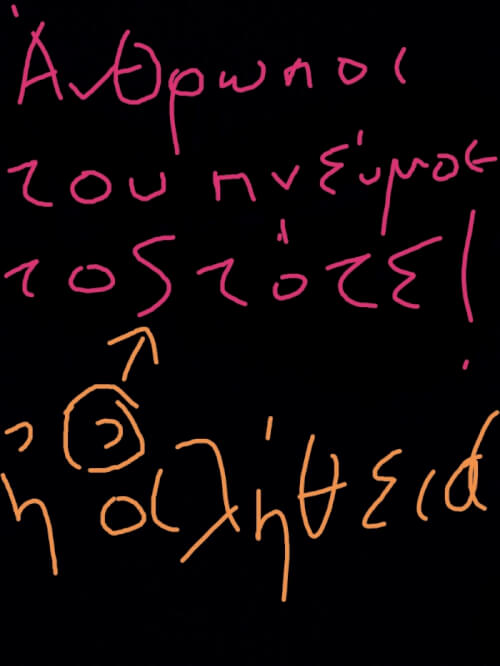 Άνθρωποι
του πνεύμα
τος τότε!
ἡ ἀλήθεια